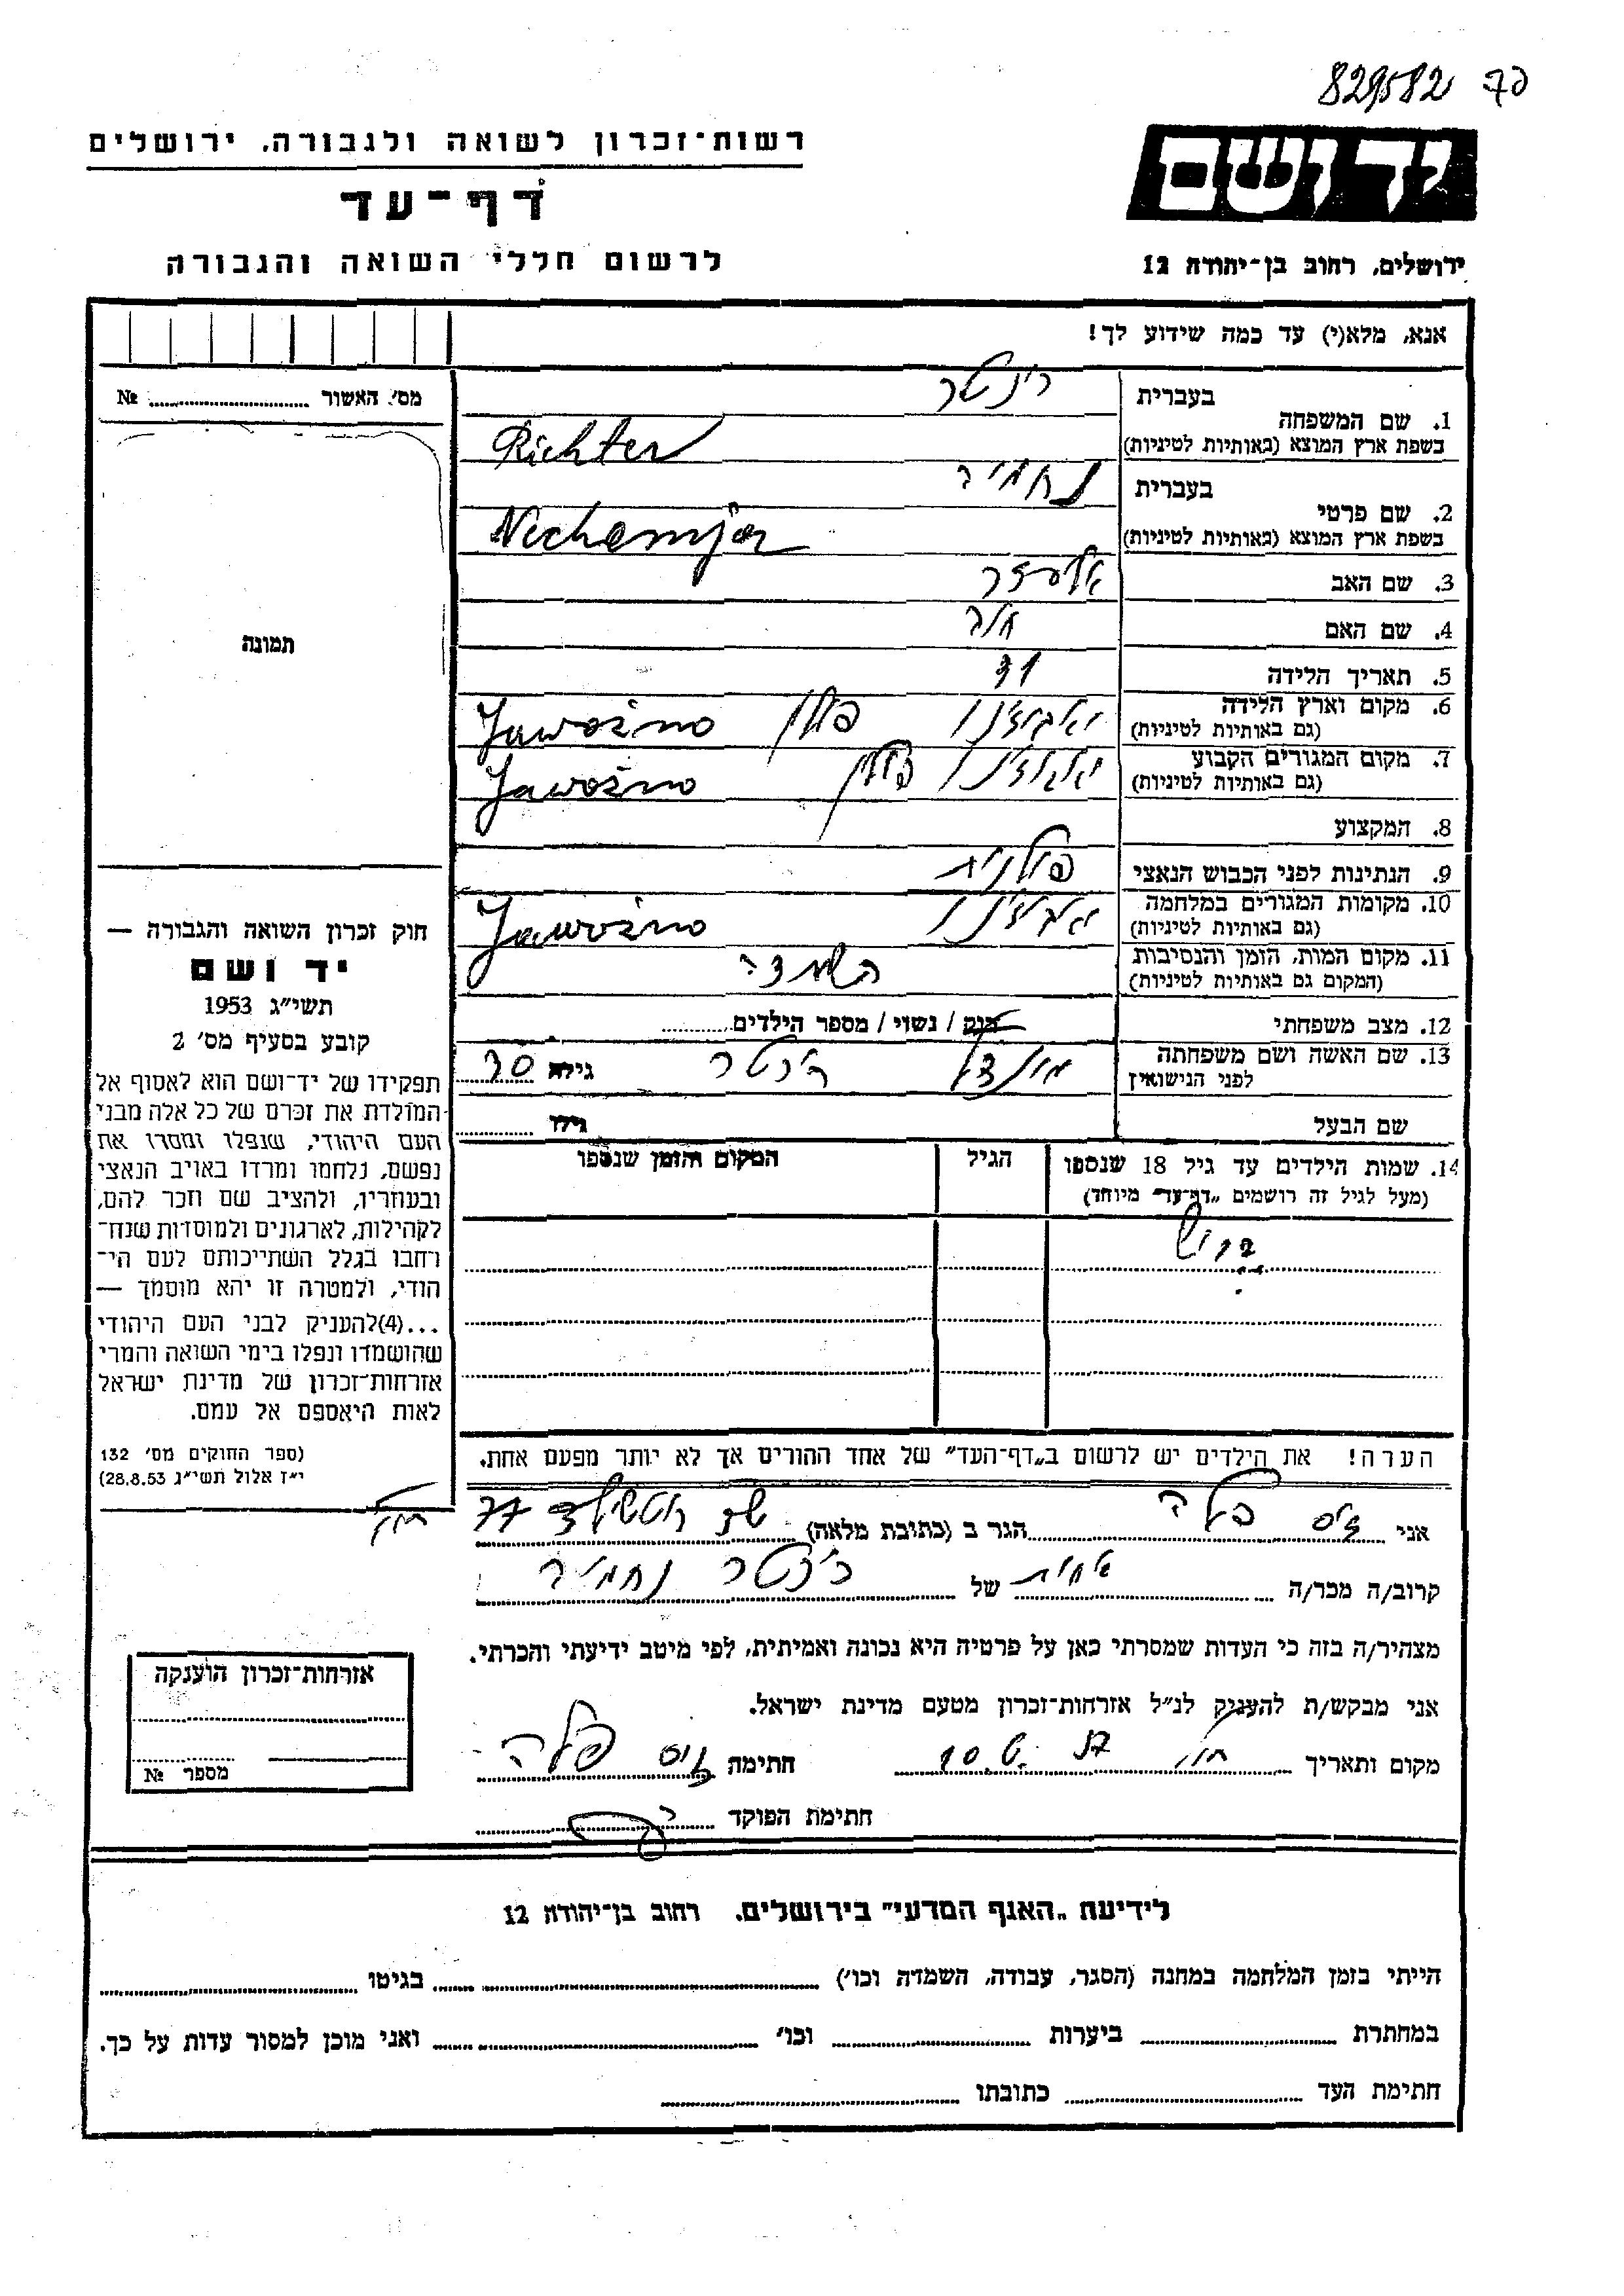 829582 פד
רשות־זכרון לשואה ולגבורה, ירושלים
יד ושם
דף־עד
ירושלים, רחוב בן־יהודה 12
לרשום חללי השואה והגבורה
אנא, מלא(י) עד כמה שידוע לך!
מס׳ האשור № ........
תמונה
בעברית
1. שם המשפחה
בשפת ארץ המוצא (באותיות לטיניות)
ריכטר
Richter
בעברית
2. שם פרטי
בשפת ארץ המוצא (באותיות לטיניות)
נחמיה
Nechemja
3. שם האב אלעזר
4. שם האם
5. תאריך הלידה
6. מקום וארץ הלידה
(גם באותיות לטיניות)
פולין Jaworzno
7. מקום המגורים הקבוע
(גם באותיות לטיניות)
פולין Jaworzno
8. המקצוע
9. הנתינות לפני הכבוש הנאצי פולנית
10. מקומות המגורים במלחמה
(גם באותיות לטיניות)
Jaworzno
11. מקום המות, הזמן והנסיבות
(המקום גם באותיות לטיניות)
השמדה
12. מצב משפחתי רוק / נשוי / מספר הילדים........
13. שם האשה ושם משפחתה
לפני הנישואין
ריכטר גילה 30
שם הבעל גילו ........
14. שמות הילדים עד גיל 18 שנספו
(מעל לגיל זה רושמים „דף־עד״ מיוחד)
הגיל
המקום והזמן שנספו
הערה! את הילדים יש לרשום ב„דף־העד״ של אחד ההורים אך לא יותר מפעם אחת.
חוק זכרון השואה והגבורה —
יד ושם
תשי״ג 1953
קובע בסעיף מס׳ 2
תפקידו של יד־ושם הוא לאסוף אל
המולדת את זכרם של כל אלה מבני
העם היהודי, שנפלו ומסרו את
נפשם, נלחמו ומרדו באויב הנאצי
ובעוזריו, ולהציב שם וזכר להם,
לקהילות, לארגונים ולמוסדות שנח־
רבו בגלל השתייכותם לעם הי־
הודי, ולמטרה זו יהא מוסמך —
...(4)להעניק לבני העם היהודי
שהושמדו ונפלו בימי השואה והמרי
אזרחות־זכרון של מדינת ישראל
לאות היאספם אל עמם.
(ספר החוקים מס׳ 132
י״ז אלול תשי״ג 28.8.53)
אני זיס בלה הגר ב (כתובת מלאה) שד רוטשילד 77
קרוב/ה מכר/ה אחות של ריכטר נחמיה
מצהיר/ה בזה כי העדות שמסרתי כאן על פרטיה היא נכונה ואמיתית, לפי מיטב ידיעתי והכרתי.
אני מבקש/ת להעניק לנ״ל אזרחות־זכרון מטעם מדינת ישראל.
מקום ותאריך חתימה זיס בלה
חתימת הפוקד
אזרחות־זכרון הוענקה
מספר №
לידיעת „האגף המדעי״ בירושלים, רחוב בן־יהודה 12
הייתי בזמן המלחמה במחנה (הסגר, עבודה, השמדה וכו׳) ........ בגיטו ........
במחתרת ........ ביערות ........ וכו׳ ........ ואני מוכן למסור עדות על כך.
חתימת העד ........ כתובתו ........